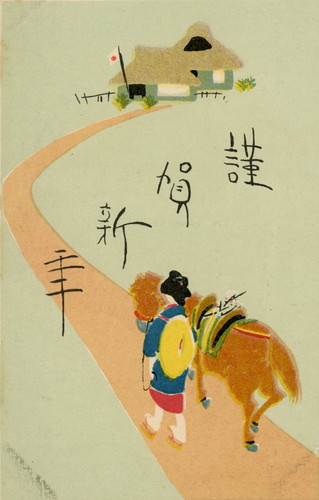 謹
賀
新
年